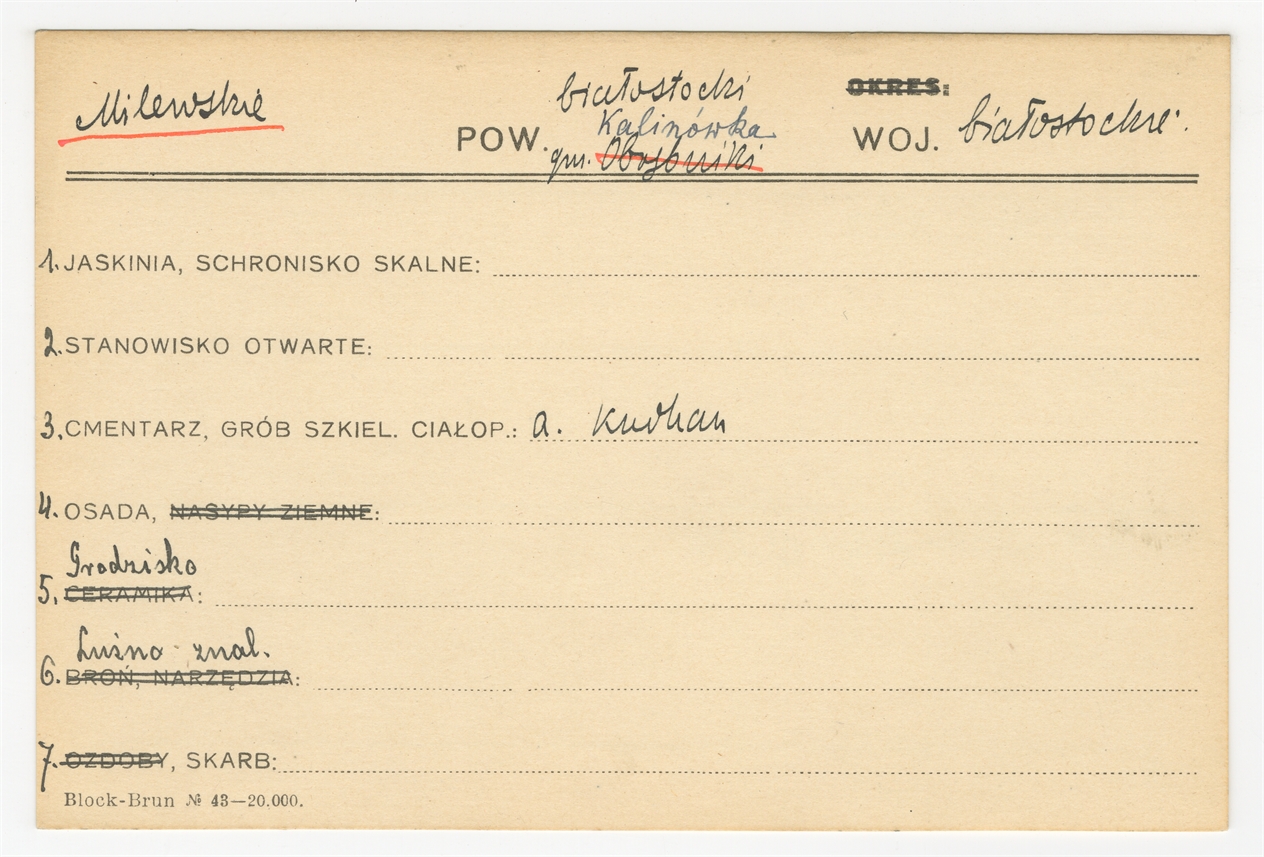 Milewskie
białostocki
OKRES:
POW. Kalinówka WOJ. białostockie.
gm. Obrębniki
1. JASKINIA, SCHRONISKO SKALNE:
2. STANOWISKO OTWARTE:
3. CMENTARZ, GRÓB SZKIEL. CIAŁOP.: a. Kurhan
4. OSADA, NASYPY ZIEMNE:
Grodzisko
5. CERAMIKA:
Luźno znal.
6. BROŃ, NARZĘDZIA:
7. OZDOBY, SKARB:
Block-Brun № 43—20.000.